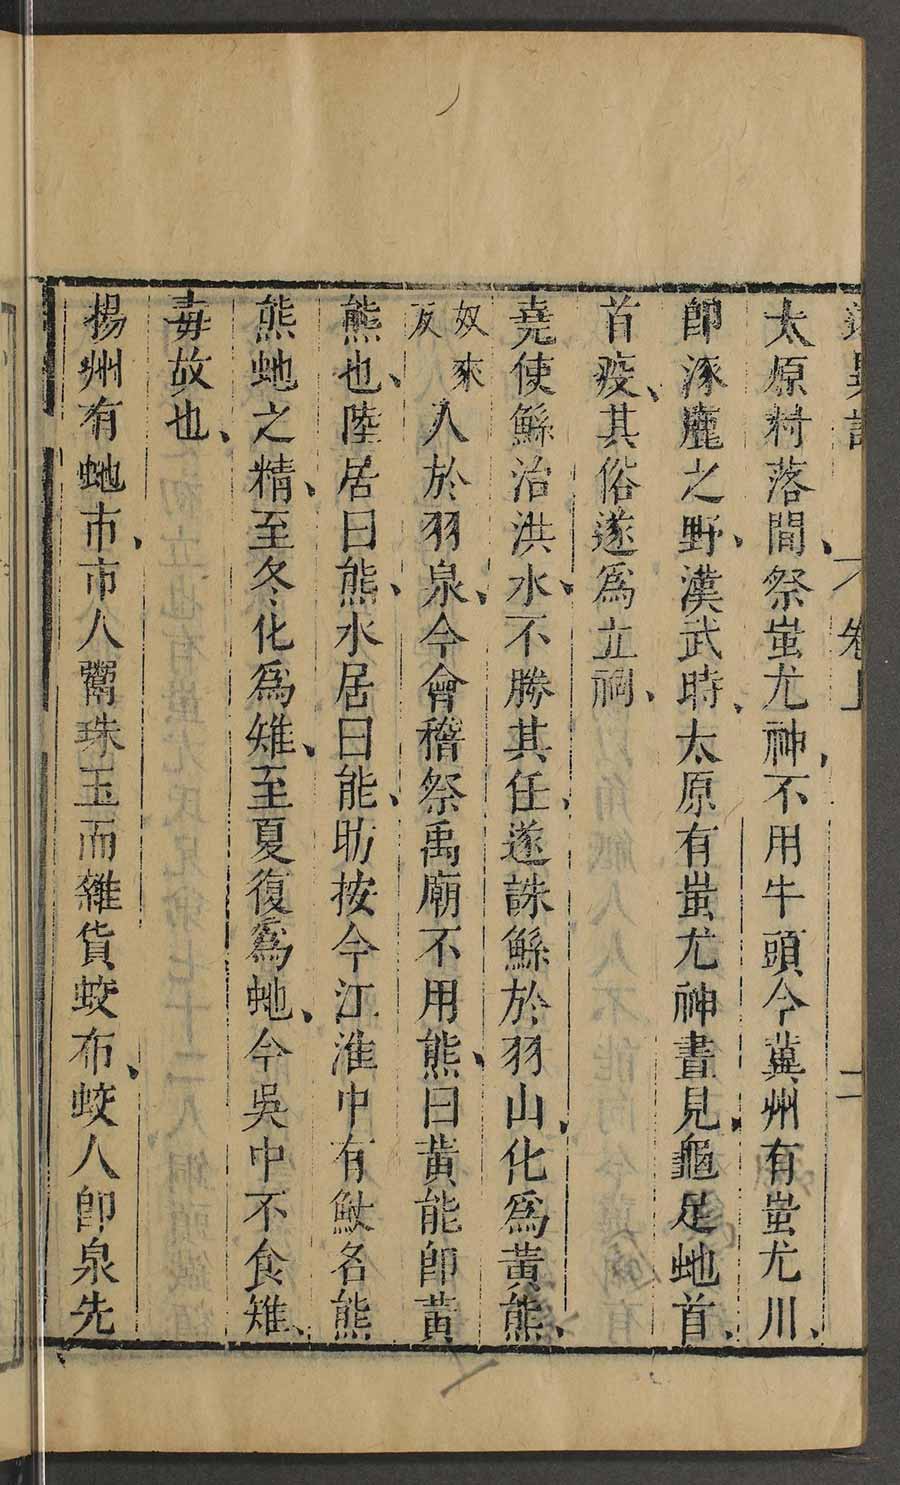 述異記 卷上 二
太原村落間、祭蚩尤神、不用牛頭今冀州有蚩尤川、
卽涿鹿之野、漢武時、太原有蚩尤神晝見、龜足虵首、
首疫、其俗遂爲立祠、
堯使鯀治洪水、不勝其任、遂誅鯀於羽山、化爲黃熊、
奴來反入於羽泉、今會稽祭禹廟不用熊、曰黃能卽黃
熊也、陸居曰熊、水居曰能、昉按今江淮中有鮌名熊
熊虵之精、至冬化爲雉、至夏復爲虵、今吳中不食雉、
毒故也、
揚州有虵市、市人鬻珠玉而雜貨蛟布、蛟人卽泉先